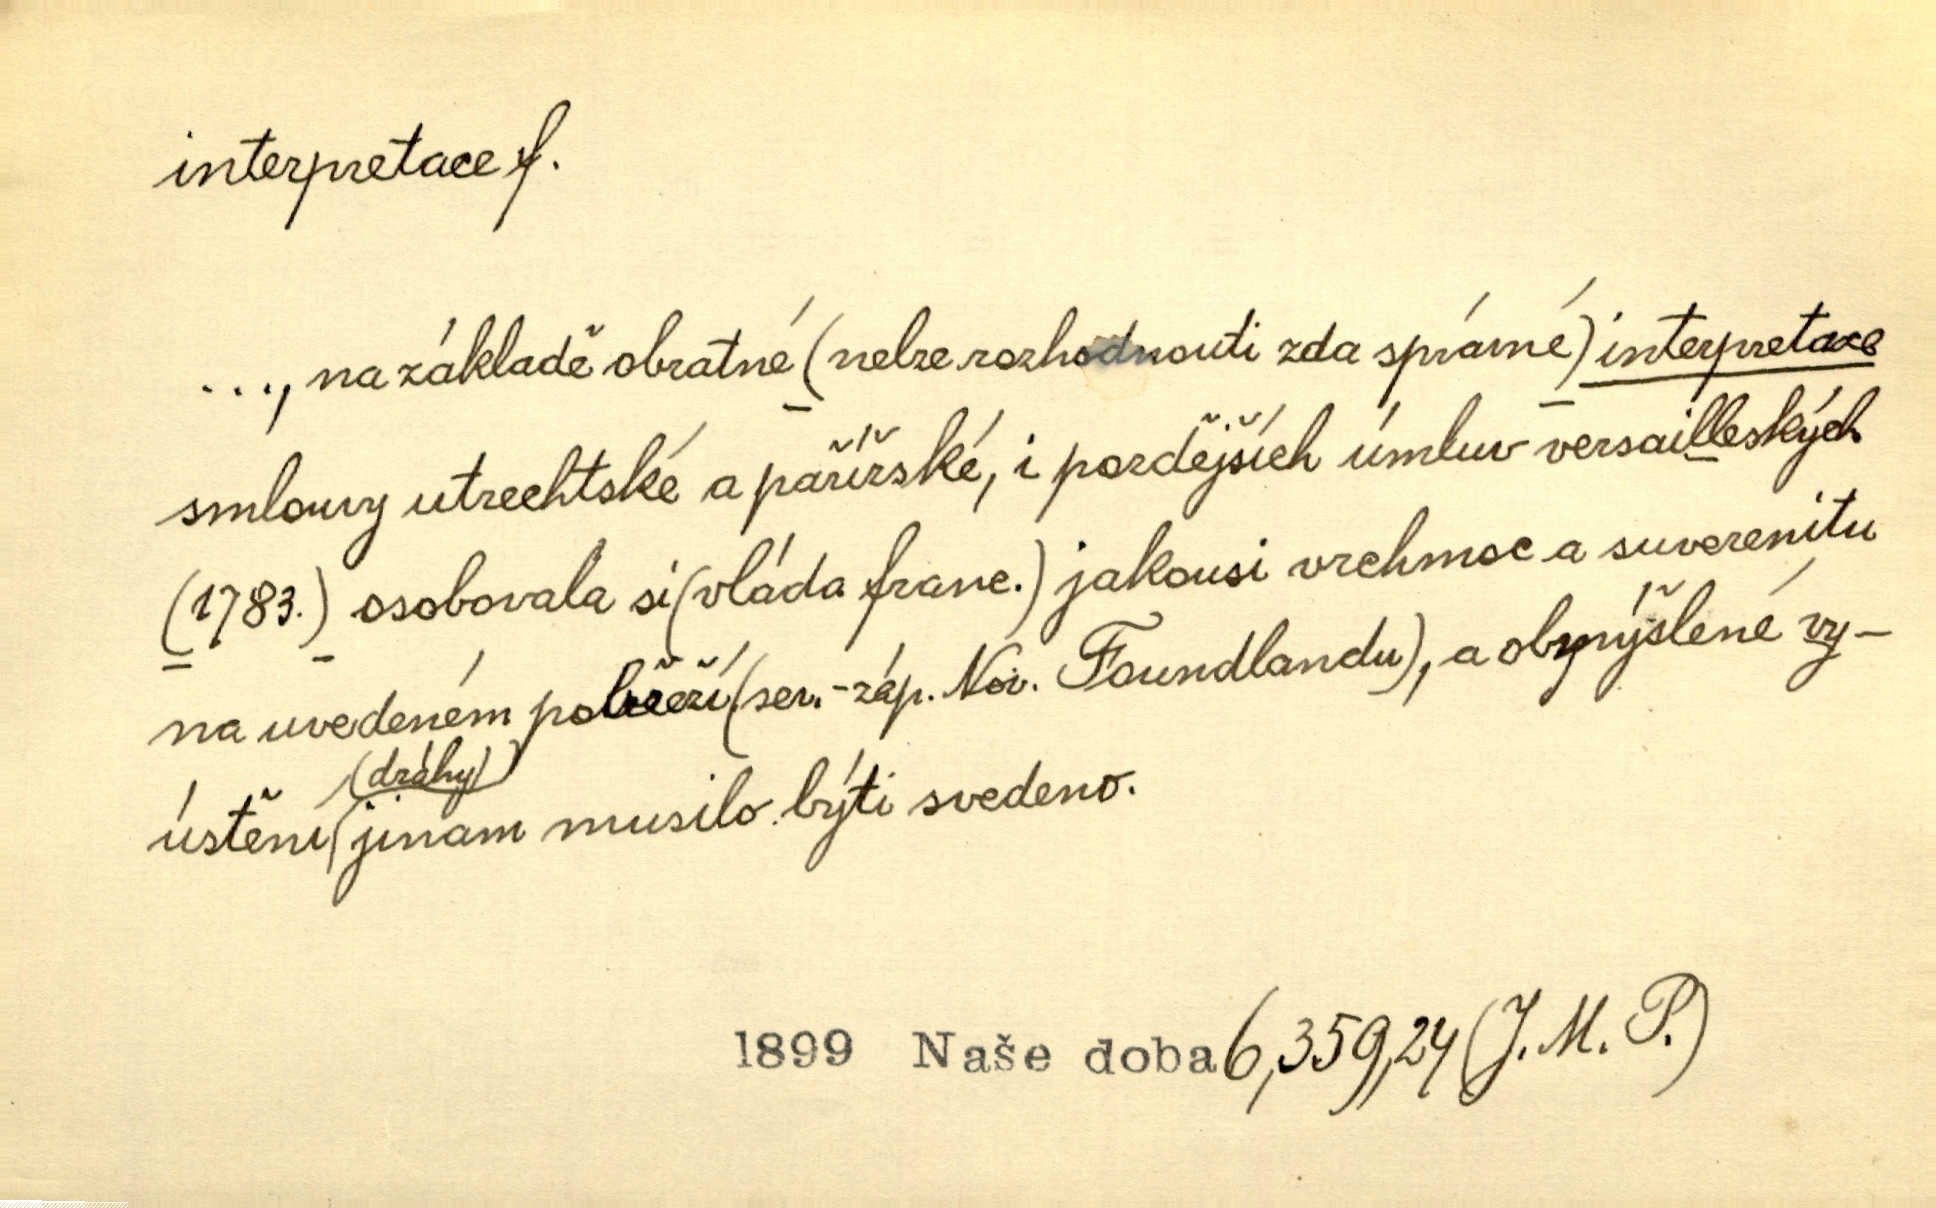 interpretace f.
..., na základě obratné (nelze rozhodnouti zda správné) interpretace
smlouvy utrechtské a pařížské, i pozdějších úmluv versailleských
(1783.) osobovala si (vláda franc.) jakousi vrchmoc a suverenitu
na uvedeném pobřeží (sev.-záp. Nov. Foundlandu), a obmýšlené vy-
(dráhy)
ústění jinam musilo býti svedeno.
1899 Naše doba 6, 359, 24 (J. M. P.)